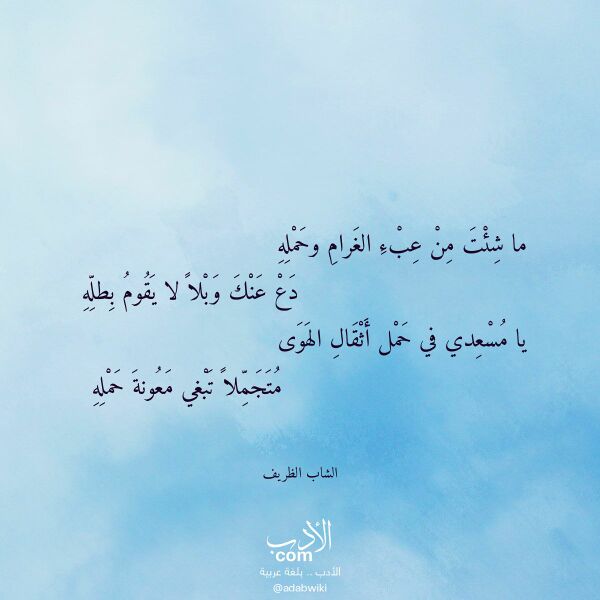 ما شِئْتَ مِنْ عِبْءِ الغَرامِ وحَمْلِهِ
دَعْ عَنْكَ وَبْلاً لا يَقُومُ بِطلِّهِ
يا مُسْعِدي في حَمْل أَثْقَالِ الهَوَى
مُتَجَمِّلاً تَبْغي مَعُونةَ حَمْلِهِ
الشاب الظريف
الأدب
com
الأدب .. بلغة عربية
@adabwiki